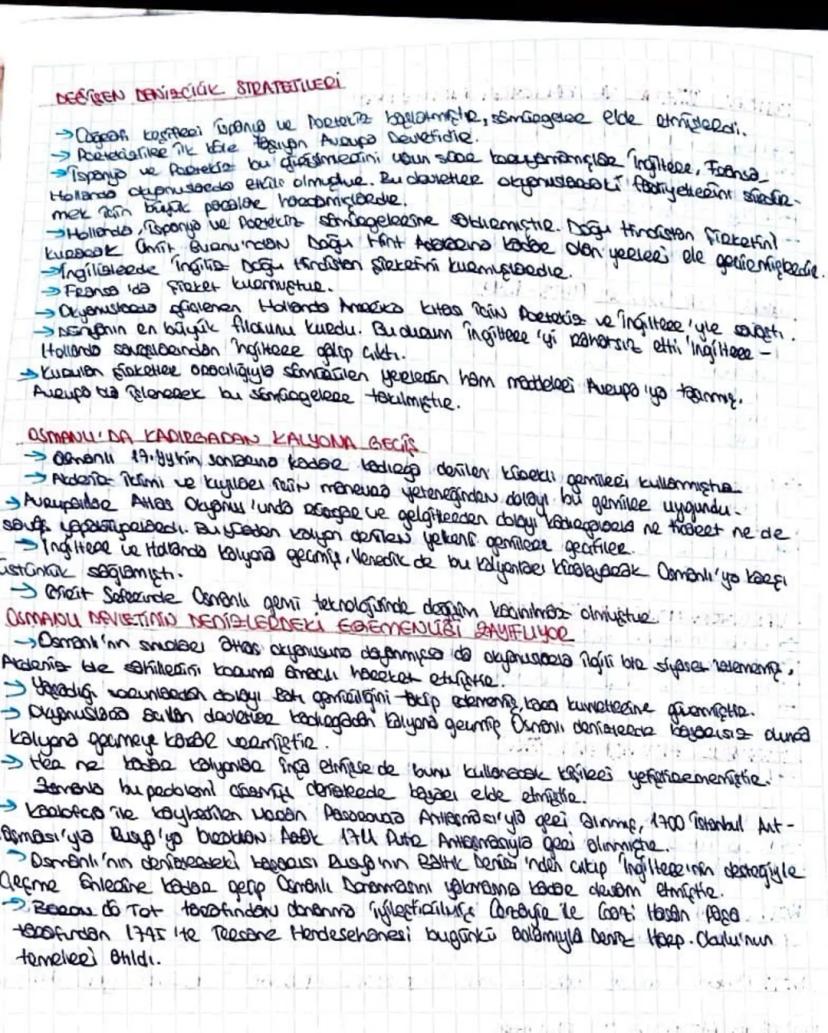 DEĞİŞEN DENİZCİLİK STRATEJİLERİ
→ Coğrafi keşifleri İspanya ve Portekiz başlatmıştır, sömürgeler elde etmişlerdi.
→ Portekizliler ilk köle taşıyan Avrupa Devletidir.
→ İspanya ve Portekiz bu girişimlerini uzun süre koruyamamışlar İngiltere, Fransa
Hollanda okyanuslarda etkili olmuştur. Bu devletler okyanuslardaki faaliyetlerini sürdür-
mek için büyük paralar harcamışlardır.
→ Hollanda, İspanya ve Portekiz sömürgelerine saldırmıştır. Doğu Hindistan Şirketini
kurarak Ümit Burnu'ndan Doğu Hint Adalarına kadar olan yerleri ele geçirmişlerdir.
→ İngilizlerde İngiliz Doğu Hindistan Şirketini kurmuşlardır.
→ Fransa'da şirket kurmuştur.
→ Okyanuslarda güçlenen Hollanda Amerika kıtası için Portekiz ve İngiltere'yle savaştı.
→ Dünyanın en büyük filosunu kurdu. Bu durum İngiltere'yi rahatsız etti. İngiltere -
Hollanda savaşlarından İngiltere galip çıktı.
→ Kurulan şirketler aracılığıyla sömürülen yerlerin ham maddeleri Avrupa'ya taşınmış,
Avrupa'da işlenerek bu sömürgelere satılmıştır.
OSMANLI'DA KADIRGADAN KALYONA GEÇİŞ
→ Osmanlı 17.yy'nin sonlarına kadar kadırga denilen kürekli gemileri kullanmıştır
→ Akdeniz iklimi ve kıyıları için manevra yeteneğinden dolayı bu gemiler uygundu.
→ Avrupalılar Atlas Okyanus'unda rüzgar ve gelgitlerden dolayı kadırgalarla ne ticaret ne de
savaş yapabiliyorlardı. Bu yüzden kalyon denilen yelkenli gemilere geçtiler.
→ İngiltere ve Hollanda kalyona geçmiş, Venedik de bu kalyonları kiralayarak Osmanlı'ya karşı
üstünlük sağlamıştı.
→ Girit Seferinde Osmanlı gemi teknolojisinde değişim kaçınılmaz olmuştur.
OSMANLI DEVLETİNİN DENİZLERDEKİ EGEMENLİĞİ ZAYIFLIYOR
→ Osmanlı'nın sınırları Atlas okyanusuna dayanmışsa da okyanuslarla ilgili bir siyaset izlememiş,
Akdeniz'de sahillerini koruma amaçlı hareket etmiştir.
→ Yaşadığı sorunlardan dolayı Batı gemiciliğini takip edememiş, kara kuvvetlerine güvenmiştir.
→ Okyanuslarda bulunan devletler kadırgadan kalyona geçmiş Osmanlı denizlerde başarısız olunca
kalyona geçmeye karar vermiştir.
→ Her ne kadar kalyonlar inşa etmişse de bunu kullanacak kişileri yetiştirememiştir.
Zamanla bu problemi aşamış denizlerde başarı elde etmiştir.
→ Karlofça ile kaybedilen Mora'nın Pasarofça Antlaşması'yla geri alınmış, 1700 İstanbul Ant-
laşması'yla Rusya'ya bırakılan Azak 1711 Prut Antlaşmasıyla geri alınmıştır.
→ Osmanlı'nın denizlerdeki başarısı Rusya'nın Baltık Denizi'nden çıkıp İngiltere'nin desteğiyle
Çeşme önlerine kadar gelip Osmanlı Donanmasını yakmasına kadar devam etmiştir.
→ Baron de Tot tarafından donanma iyileştirilmiş Cezayirli Gazi Hasan Paşa
tarafından 1775'te Tersane Hendesehanesi bugünkü anlamıyla Deniz Harp Okulu'nun
temelleri atıldı.